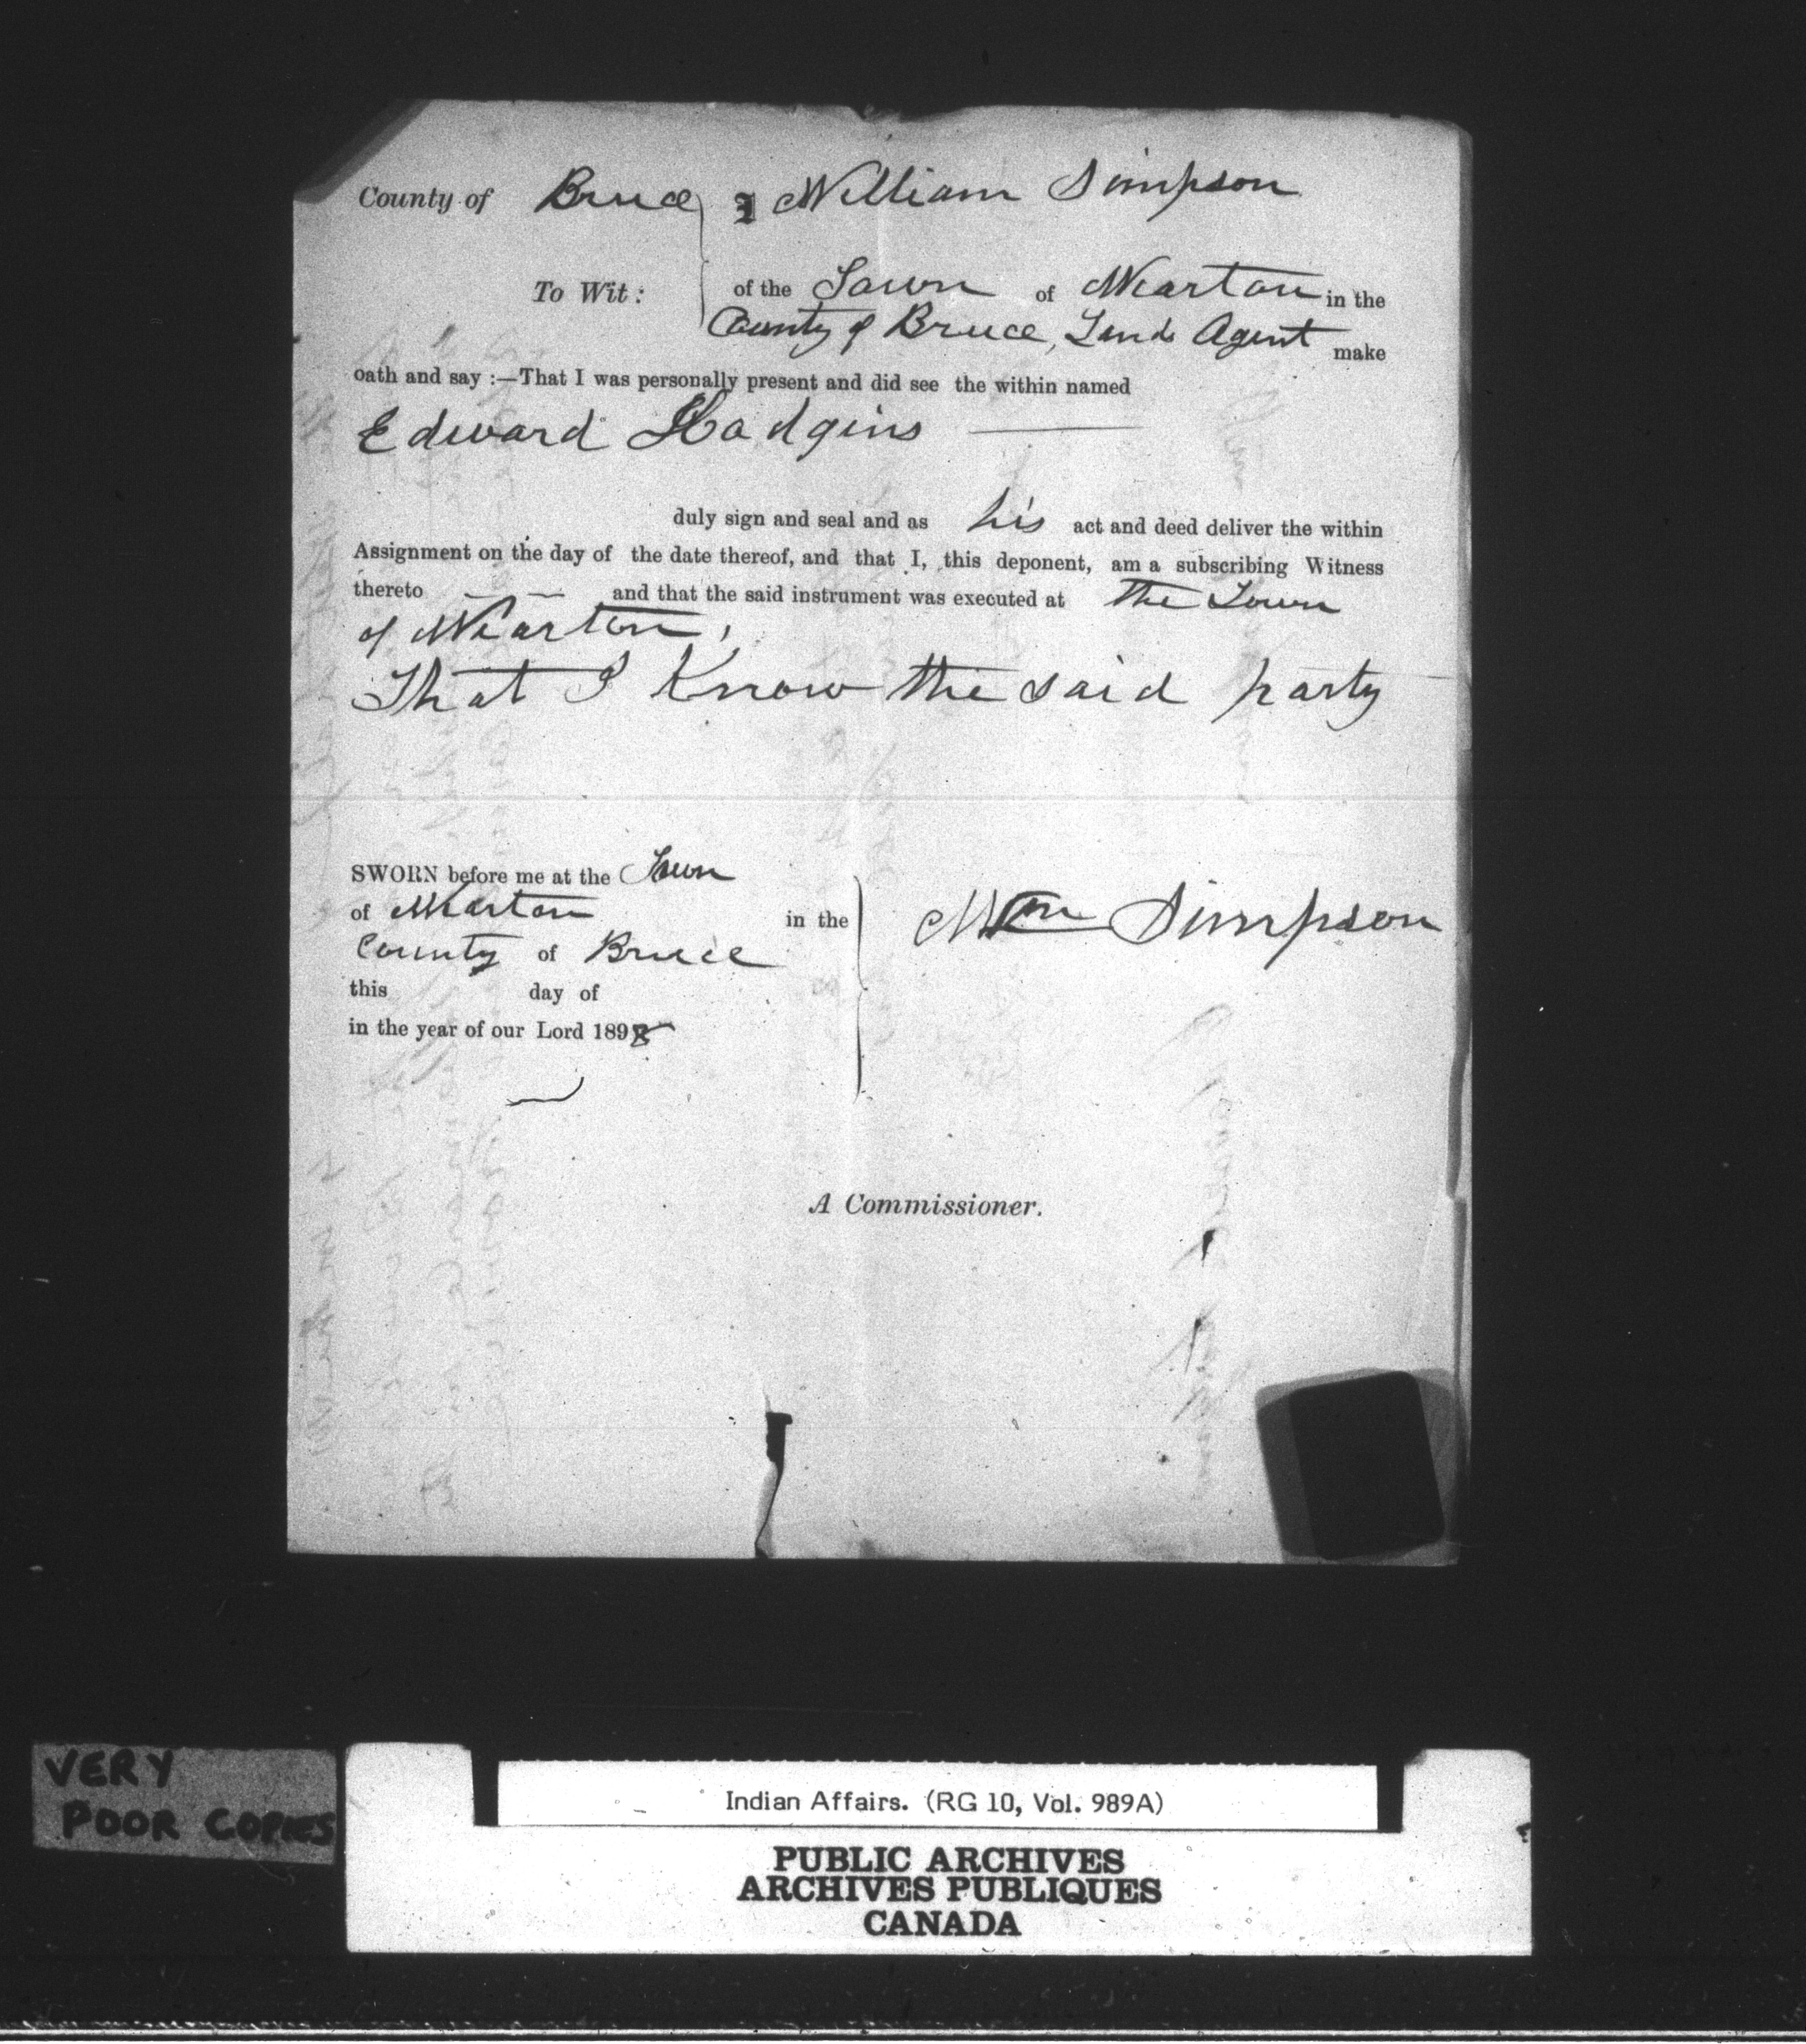 County of Bruce I William Simpson
To Wit: of the Town of Wiarton in the
County of Bruce, Land Agent make
oath and say :—That I was personally present and did see the within named
Edward Hodgins
duly sign and seal and as his act and deed deliver the within
Assignment on the day of the date thereof, and that I, this deponent, am a subscribing Witness
thereto — — and that the said instrument was executed at the Town
of Wiarton,
That I Know the said party
SWORN before me at the Town
of Wiarton in the
County of Bruce
this day of
in the year of our Lord 1898
Wm Simpson
A Commissioner.
VERY
POOR COPIES
Indian Affairs. (RG 10, Vol. 989A)
PUBLIC ARCHIVES
ARCHIVES PUBLIQUES
CANADA